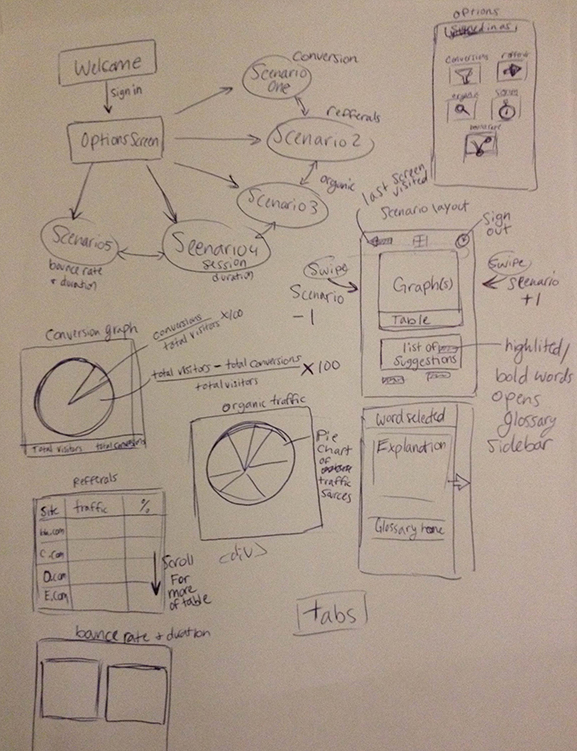 Welcome
sign in
Options Screen
Conversion
Scenario
One
refferals
Scenario 2
organic
Scenario 3
Scenario 4
session
duration
Scenario 5
bounce rate
+ duration
options
in as
Conversions
organic
last screen
visited
Scenario layout
Sign
out
Swipe
Scenario
-1
Swipe
scenario
+1
Graph(s)
Table
list of
suggestions
highlited/
bold words
opens
glossary
sidebar
Conversion graph
conversions x100
total visitors
total visitors - total conversions x 100
total visitors
Total visitors total conversions
Organic traffic
Pie
Chart
of
traffic
sarces
<div>
word seleted
Explanation
Glossary home
Refferals
Site traffic %
C.com
O.com
E.com
Scroll
For
more
of table
tabs
bounce rate + duration